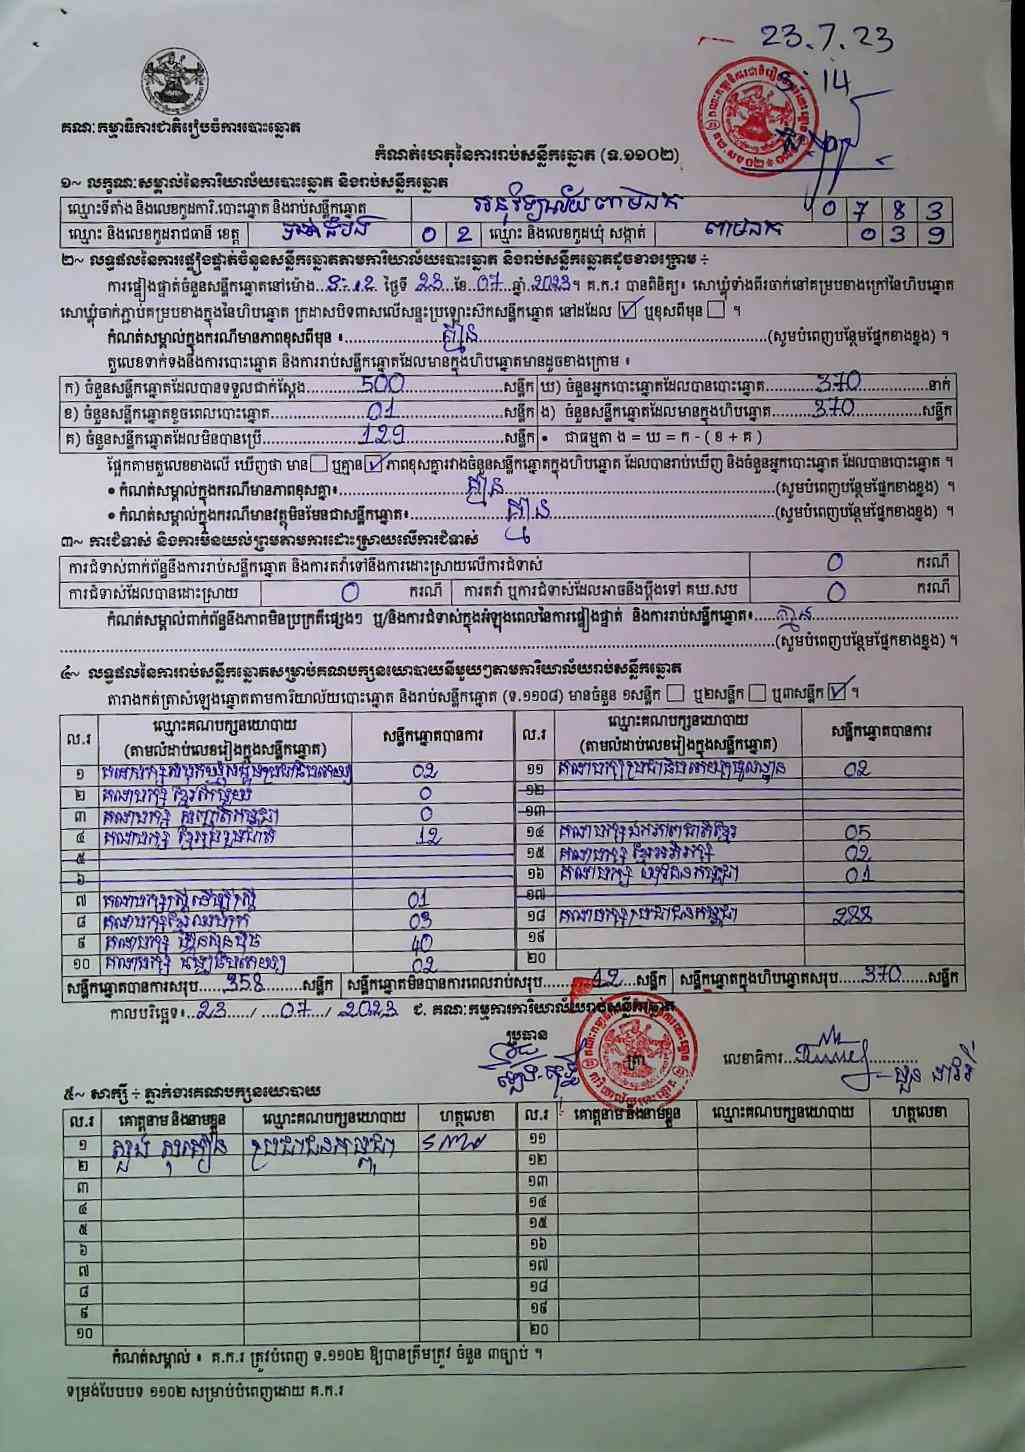 23.7.23
14
គណៈកម្មាធិការជាតិរៀបចំការបោះឆ្នោត
កំណត់ហេតុនៃការរាប់សន្លឹកឆ្នោត (ទ.១១០២)
១~ លក្ខណៈសម្គាល់នៃការិយាល័យបោះឆ្នោត និងរាប់សន្លឹកឆ្នោត
ឈ្មោះទីតាំង និងលេខកូដការិ.បោះឆ្នោត និងរាប់សន្លឹកឆ្នោត អនុវិទ្យាល័យពាមឯក 0 7 8 3
ឈ្មោះ និងលេខកូដរាជធានី ខេត្ត បាត់ដំបង 0 2 ឈ្មោះ និងលេខកូដឃុំ សង្កាត់ ពាមឯក 0 3 9
២~ លទ្ធផលនៃការផ្ទៀងផ្ទាត់ចំនួនសន្លឹកឆ្នោតតាមការិយាល័យបោះឆ្នោត និងរាប់សន្លឹកឆ្នោតដូចខាងក្រោម ÷
ការផ្ទៀងផ្ទាត់ចំនួនសន្លឹកឆ្នោតនៅម៉ោង ថ្ងៃទី 23 ខែ 07 ឆ្នាំ 2023។ គ.ក.រ បានពិនិត្យ៖ សោឃ្លុំទាំងពីរចាក់នៅគម្របខាងក្រៅនៃហិបឆ្នោត
សោឃ្លុំចាក់ភ្ជាប់គម្របខាងក្នុងនៃហិបឆ្នោត ក្រដាសបិទពាសលើសន្ទះប្រឡោះស៊កសន្លឹកឆ្នោត នៅដដែល ☑ ឬខុសពីមុន ☐ ។
កំណត់សម្គាល់ក្នុងភាពខុសពីមុន ៖ គ្មាន (សូមបំពេញបន្ថែមផ្នែកខាងខ្នង) ។
តួលេខទាក់ទងនឹងការបោះឆ្នោត និងការរាប់សន្លឹកឆ្នោតដែលមានក្នុងហិបឆ្នោតមានដូចខាងក្រោម ៖
ក) ចំនួនសន្លឹកឆ្នោតដែលបានទទួលជាក់ស្តែង 500 សន្លឹក ឃ) ចំនួនអ្នកបោះឆ្នោតដែលបានបោះឆ្នោត 370 នាក់
ខ) ចំនួនសន្លឹកឆ្នោតខូចពេលបោះឆ្នោត 01 សន្លឹក ង) ចំនួនសន្លឹកឆ្នោតដែលមានក្នុងហិបឆ្នោត 370 សន្លឹក
គ) ចំនួនសន្លឹកឆ្នោតដែលមិនបានប្រើ 129 សន្លឹក • ជាធម្មតា ង = ឃ = ក - ( ខ + គ )
ផ្អែកតាមតួលេខខាងលើ ឃើញថា មាន ☐ ឬគ្មាន ☑ ភាពខុសគ្នារវាងចំនួនសន្លឹកឆ្នោតក្នុងហិបឆ្នោត ដែលបានរាប់ឃើញ និងចំនួនអ្នកបោះឆ្នោត ដែលបានបោះឆ្នោត ។
• កំណត់សម្គាល់ក្នុងករណីមានភាពខុសគ្នា៖ គ្មាន (សូមបំពេញបន្ថែមផ្នែកខាងខ្នង) ។
• កំណត់សម្គាល់ក្នុងករណីមានវត្ថុមិនមែនជាសន្លឹកឆ្នោត៖ គ្មាន (សូមបំពេញបន្ថែមផ្នែកខាងខ្នង) ។
៣~ ការជំទាស់ និងការមិនយល់ព្រមតាមការដោះស្រាយលើការជំទាស់
ការជំទាស់ពាក់ព័ន្ធនឹងការរាប់សន្លឹកឆ្នោត និងការតវ៉ាទៅនឹងការដោះស្រាយលើការជំទាស់ 0 ករណី
ការជំទាស់ដែលបានដោះស្រាយ 0 ករណី ការតវ៉ា ឬការជំទាស់ដែលអាចនឹងប្តឹងទៅ គឃ.សប 0 ករណី
កំណត់សម្គាល់ពាក់ព័ន្ធនឹងភាពមិនប្រក្រតីផ្សេងៗ ឬ/និងការជំទាស់ក្នុងអំឡុងពេលនៃការផ្ទៀងផ្ទាត់ និងការរាប់សន្លឹកឆ្នោត៖ គ្មាន
(សូមបំពេញបន្ថែមផ្នែកខាងខ្នង) ។
៤~ លទ្ធផលនៃការរាប់សន្លឹកឆ្នោតសម្រាប់គណបក្សនយោបាយនីមួយៗតាមការិយាល័យរាប់សន្លឹកឆ្នោត
តារាងកត់ត្រាសំឡេងឆ្នោតតាមការិយាល័យបោះឆ្នោត និងរាប់សន្លឹកឆ្នោត (ទ.១១០៨) មានចំនួន ១សន្លឹក ☐ ឬ២សន្លឹក ☐ ឬ៣សន្លឹក ☑ ។
ល.រ ឈ្មោះគណបក្សនយោបាយ (តាមលំដាប់លេខរៀងក្នុងសន្លឹកឆ្នោត) សន្លឹកឆ្នោតបានការ ល.រ ឈ្មោះគណបក្សនយោបាយ (តាមលំដាប់លេខរៀងក្នុងសន្លឹកឆ្នោត) សន្លឹកឆ្នោតបានការ
១ 02 ១១ គណបក្សប្រជាធិបតេយ្យមូលដ្ឋាន 02
២ គណបក្ស ខ្មែរតែមួយ 0 ១២
៣ គណបក្ស សញ្ជាតិកម្ពុជា 0 ១៣
៤ គណបក្ស ខ្មែររួបរួមជាតិ 12 ១៤ គណបក្សឯកភាពជាតិខ្មែរ 05
៥ ១៥ គណបក្ស ខ្មែរអភិរក្ស 02
៦ ១៦ គណបក្ស យុវជនកម្ពុជា 01
៧ គណបក្សស្ត្រីដើម្បីស្ត្រី 01 ១៧
៨ គណបក្សខ្មែរឈប់ក្រ 03 ១៨ គណបក្សប្រជាជនកម្ពុជា 288
៩ គណបក្ស ហ៊្វុនស៊ិនប៉ិច 40 ១៩
១០ គណបក្ស ធម្មាធិបតេយ្យ 02 ២០
សន្លឹកឆ្នោតបានការសរុប 358 សន្លឹក សន្លឹកឆ្នោតមិនបានការពេលរាប់សរុប 12 សន្លឹក សន្លឹកឆ្នោតក្នុងហិបឆ្នោតសរុប 370 សន្លឹក
កាលបរិច្ឆេទ៖ 23 / 07 / 2023 ជ. គណៈកម្មការការិយាល័យរាប់សន្លឹកឆ្នោត
ប្រធាន ត្រា លេខាធិការ
៥~ សាក្សី ÷ ភ្នាក់ងារគណបក្សនយោបាយ
ល.រ គោត្តនាម និងនាមខ្លួន ឈ្មោះគណបក្សនយោបាយ ហត្ថលេខា ល.រ គោត្តនាម និងនាមខ្លួន ឈ្មោះគណបក្សនយោបាយ ហត្ថលេខា
១ ប្រជាជនកម្ពុជា ១១
២ ១២
៣ ១៣
៤ ១៤
៥ ១៥
៦ ១៦
៧ ១៧
៨ ១៨
៩ ១៩
១០ ២០
កំណត់សម្គាល់ ៖ គ.ក.រ ត្រូវបំពេញ ទ.១១០២ ឱ្យបានត្រឹមត្រូវ ចំនួន ៣ច្បាប់ ។
ទម្រង់បែបបទ ១១០២ សម្រាប់បំពេញដោយ គ.ក.រ